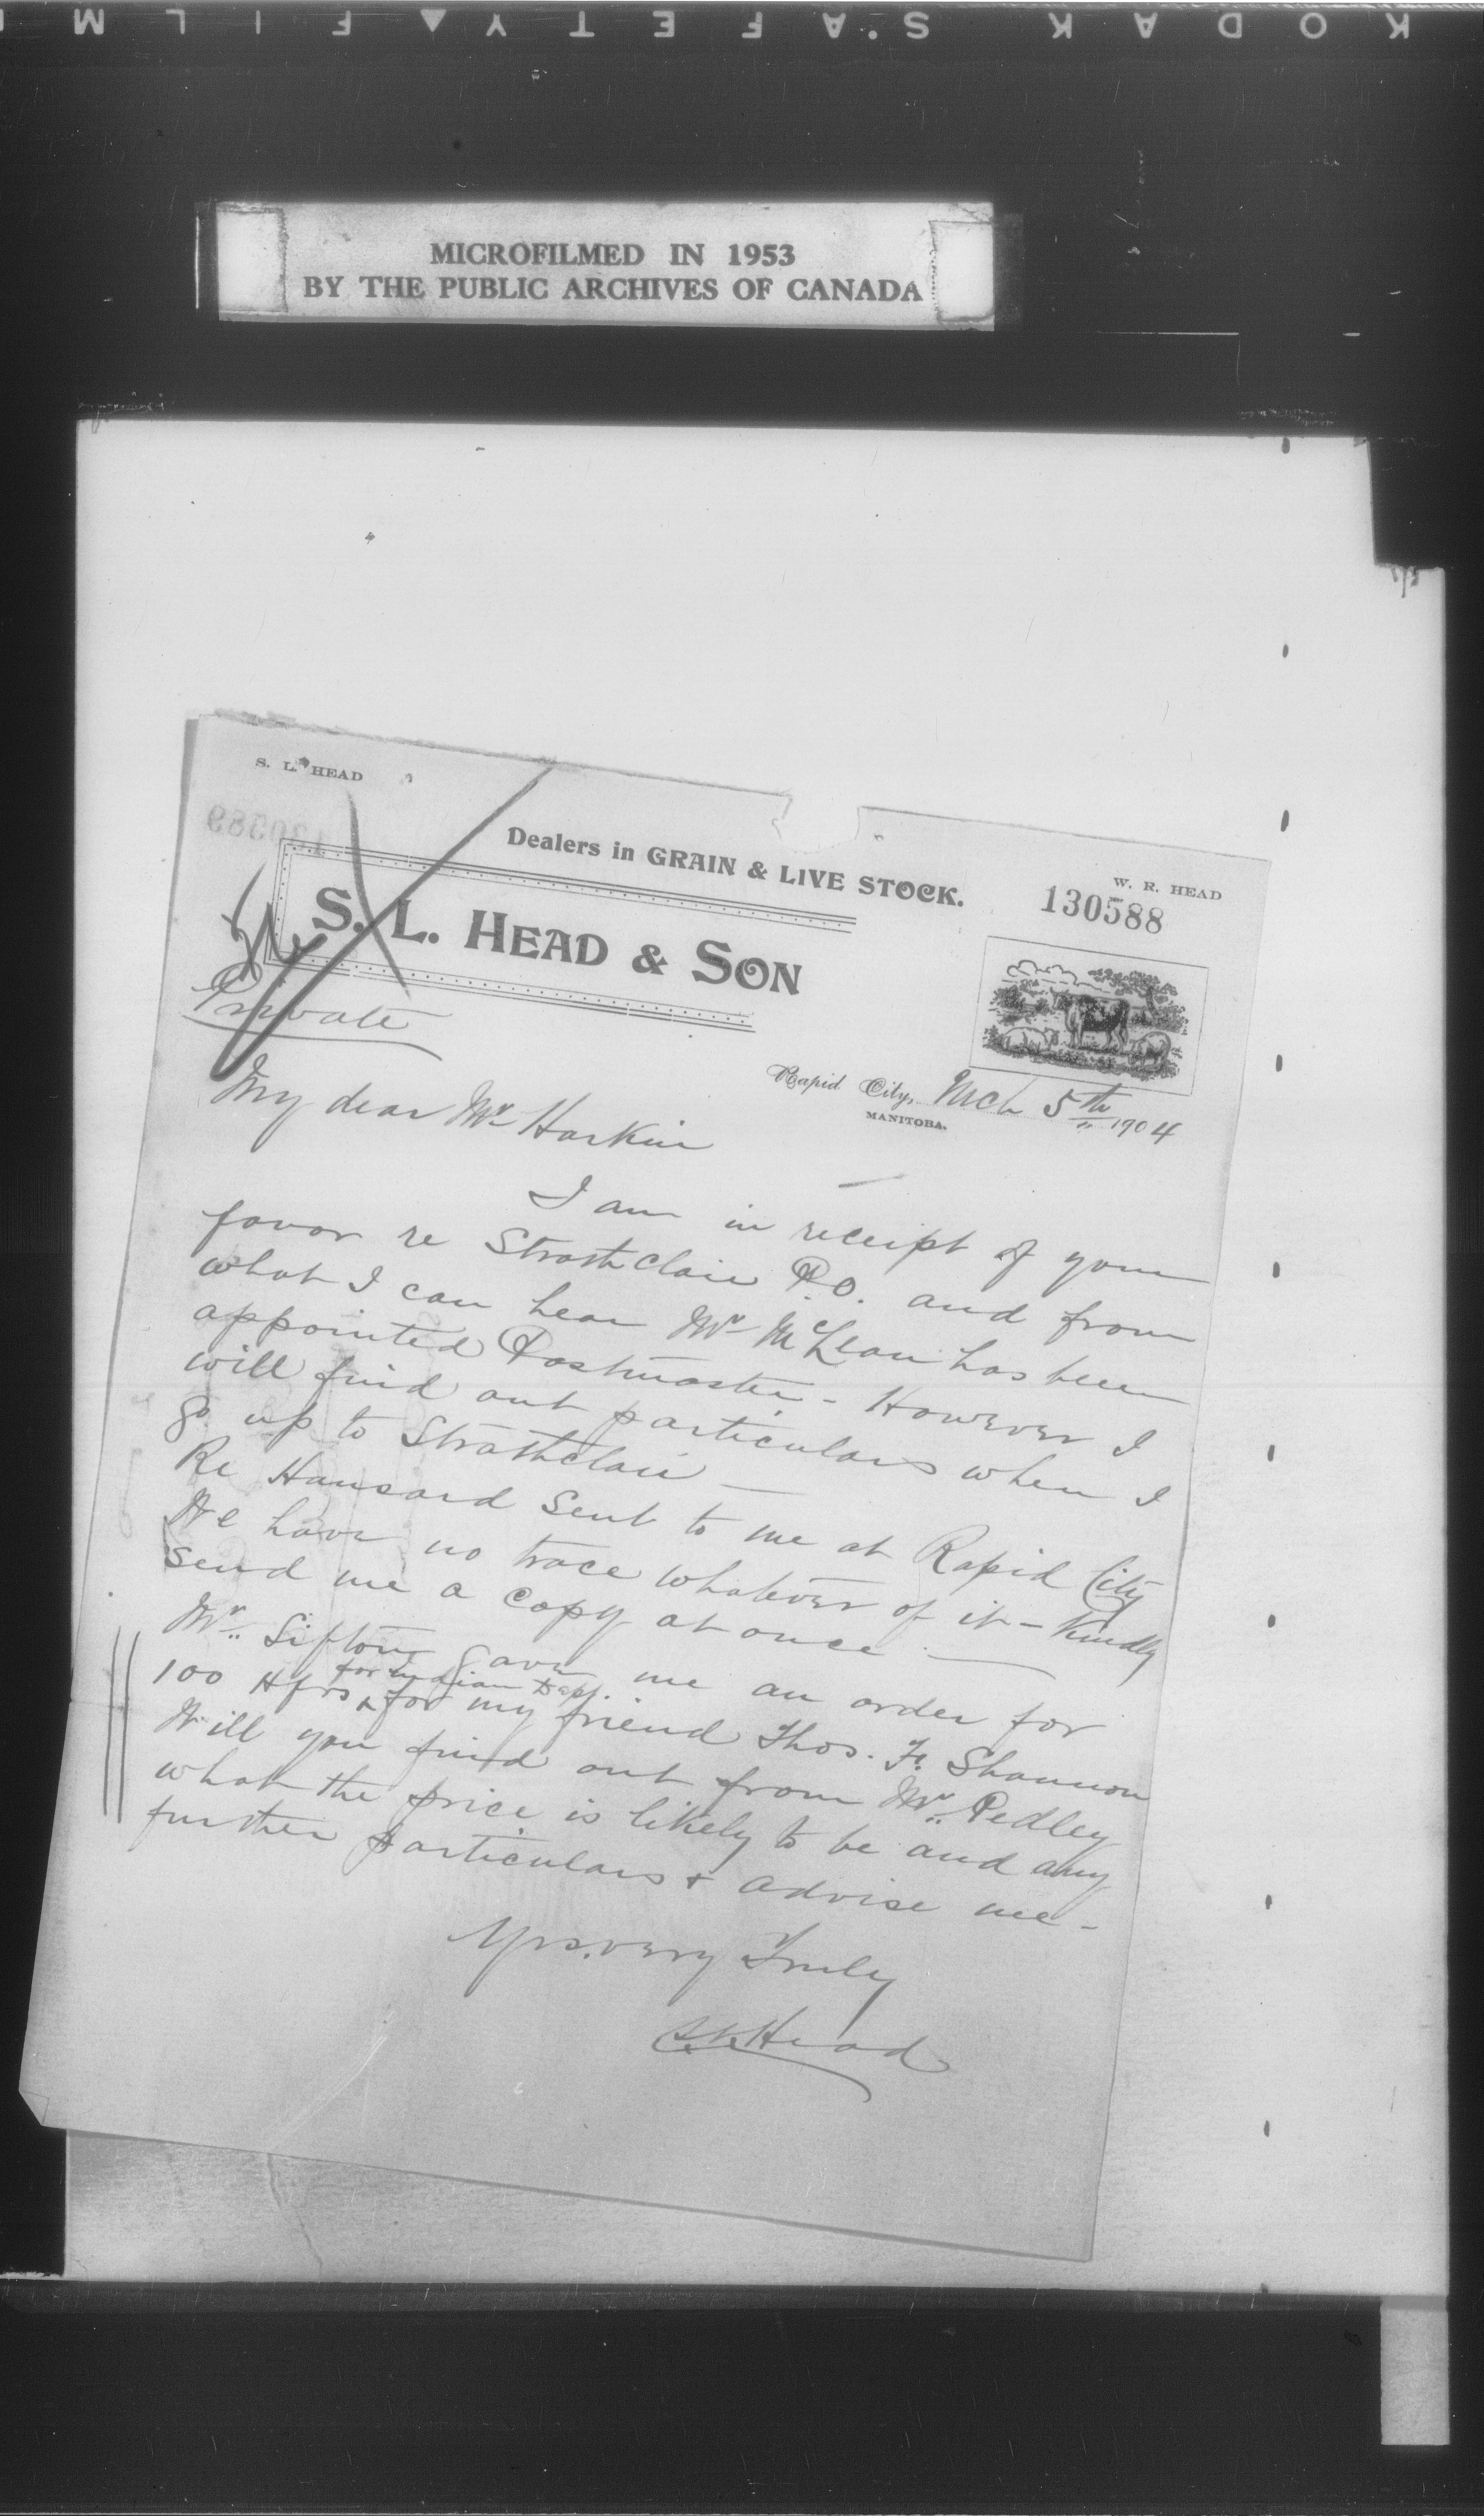 KODAK SAFETY FILM
MICROFILMED IN 1953
BY THE PUBLIC ARCHIVES OF CANADA
S. L. HEAD
Dealers in GRAIN & LIVE STOCK.
W. R. HEAD
130588
S. L. HEAD & SON
Private
Rapid City, Mch 5th 1904
MANITOBA.
My dear Mr Harkin
I am in receipt of your
favor re Strathclair P.O. and from
what I can hear Mr McLean has been
appointed Postmaster - However I
will find out particulars when I
go up to Strathclair —
Re Hansard sent to me at Rapid City
We have no trace whatever of it - Kindly
send me a copy at once —
Mr. Sifton gave me an order for
for Indian Dept.
100 Hfrs ^ for my friend Thos. F. Shannon
Will you find out from Mr. Pedley
what the price is likely to be and any
further particulars + advise me -
Yrs. very Truly
S.L. Head